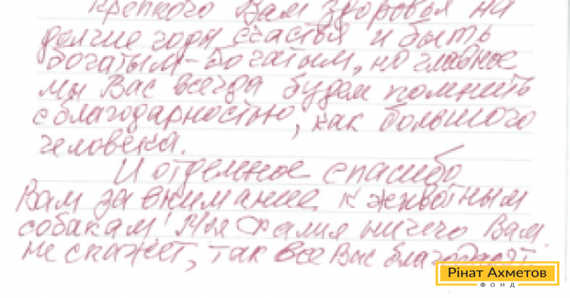 Крепкого Вам здоровья на
долгие годы счастья и быть
богатым-богатым, но главное
мы Вас всегда будем помнить
с благодарностью, как большого
человека.
И отдельное спасибо
Вам за внимание к животным
собакам! Моя фамилия ничего Вам
не скажет, так все Вас благодарят
Рінат Ахметов
ФОНД